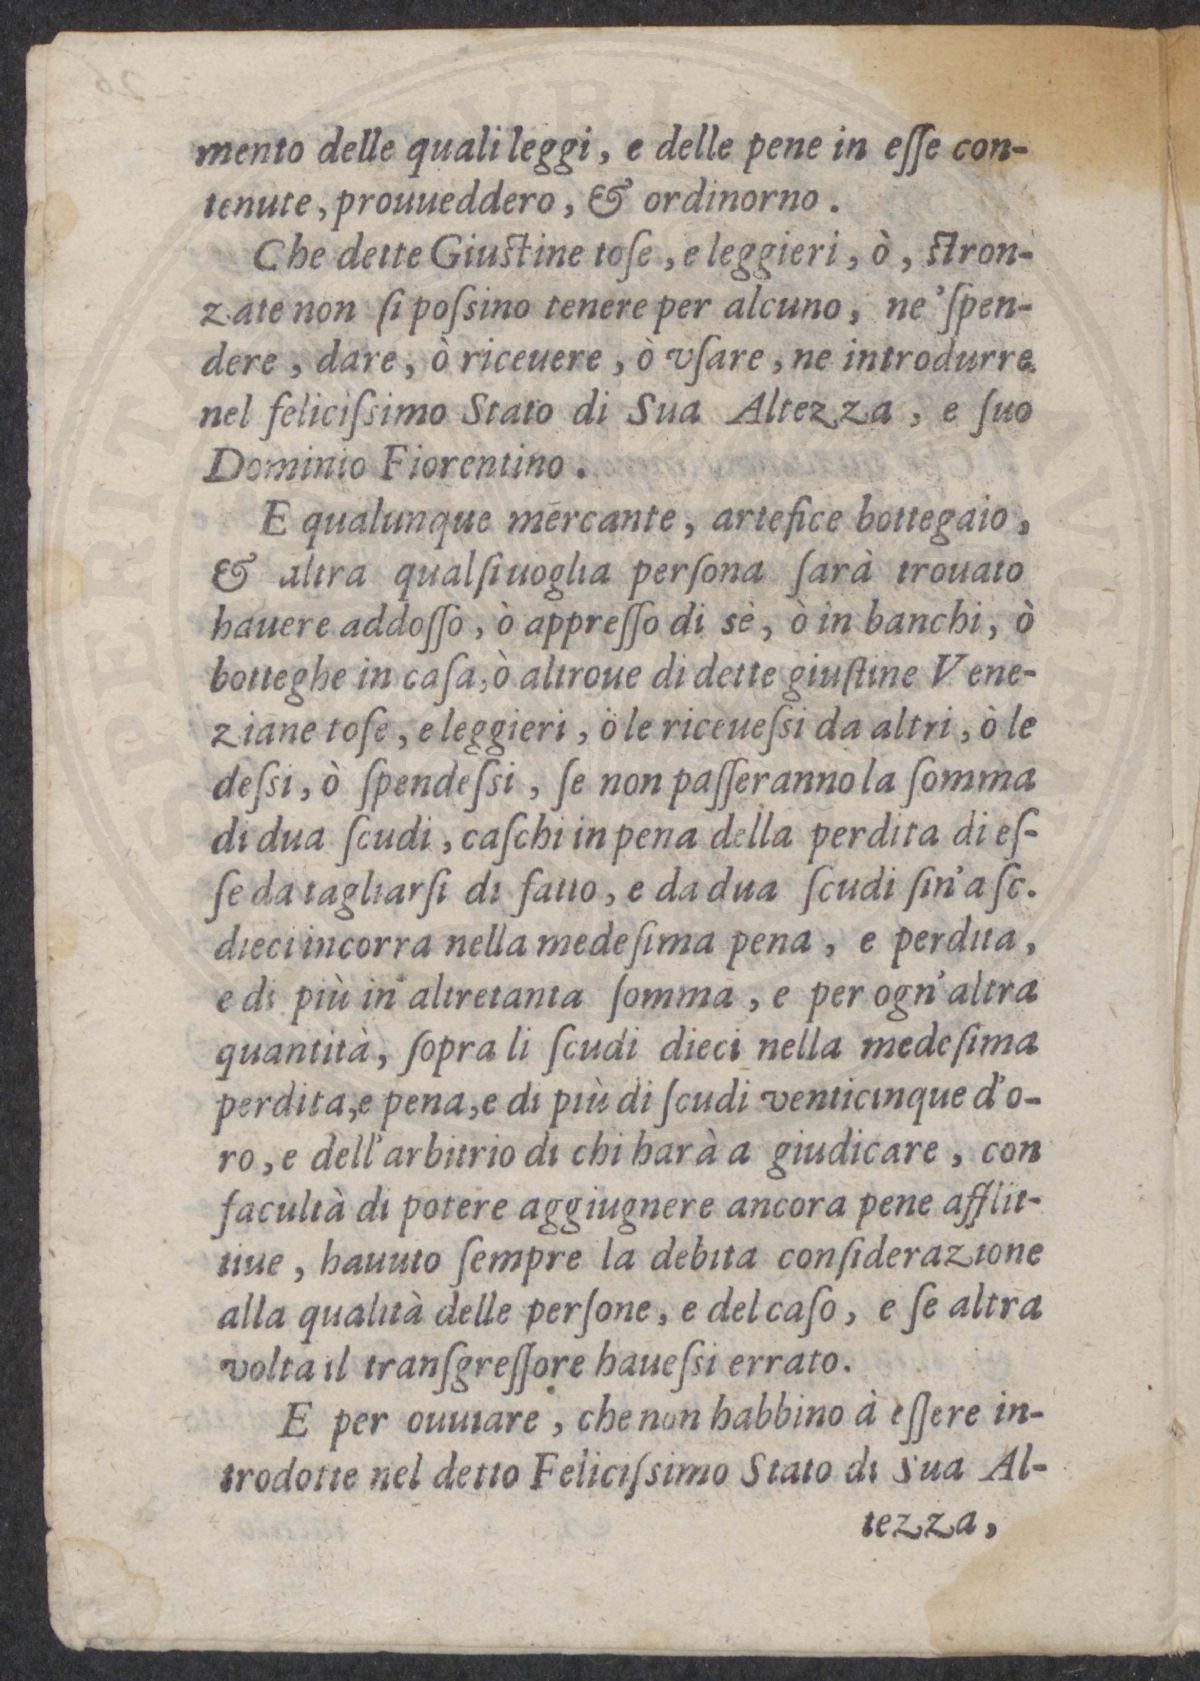 mento delle quali leggi, e delle pene in eſſe con-
tenute, prouueddero, & ordinorno.
Che dette Giuſtine toſe, e leggieri, ò, ſtron-
zate non ſi poſsino tenere per alcuno, ne' ſpen-
dere, dare, ò riceuere, ò vſare, ne introdurre
nel feliciſsimo Stato di Sua Altezza, e ſuo
Dominio Fiorentino.
E qualunque mercante, artefice bottegaio,
& altra qualſiuoglia perſona ſarà trouato
hauere addoſſo, ò appreſſo di sè, ò in banchi, ò
botteghe in caſa, ò altroue di dette giuſtine Vene-
ziane toſe, e leggieri, ò le riceueſsi da altri, ò le
deſsi, ò ſpendeſsi, ſe non paſſeranno la ſomma
di dua ſcudi, caſchi in pena della perdita di eſ-
ſe da tagliarſi di fatto, e da dua ſcudi ſin'a ſc.
dieci incorra nella medeſima pena, e perdita,
e di più in altretanta ſomma, e per ogn'altra
quantità, ſopra li ſcudi dieci nella medeſima
perdita, e pena, e di più di ſcudi venticinque d'o-
ro, e dell'arbitrio di chi harà a giudicare, con
facultà di potere aggiugnere ancora pene afflit-
tiue, hauuto ſempre la debita conſiderazione
alla qualità delle perſone, e del caſo, e ſe altra
volta il tranſgreſſore haueſsi errato.
E per ouuiare, che non habbino à eſſere in-
trodotte nel detto Feliciſsimo Stato di Sua Al-
tezza,